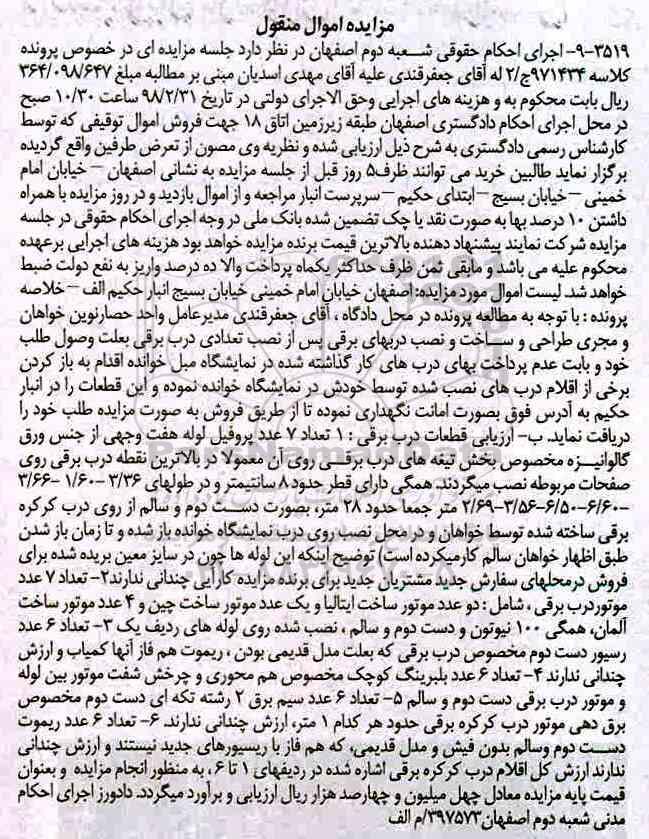 مزایده اموال منقول
۹-۳۵۱۹- اجرای احکام حقوقی شعبه دوم اصفهان در نظر دارد جلسه مزایده ای در خصوص پرونده
کلاسه ۹۷۱۴۳۴ج/۲ له آقای جعفرقندی علیه آقای مهدی اسدیان مبنی بر مطالبه مبلغ ۳۶۴/۰۹۸/۶۴۷
ریال بابت محکوم به و هزینه های اجرایی وحق الاجرای دولتی در تاریخ ۹۸/۲/۳۱ ساعت ۱۰/۳۰ صبح
در محل اجرای احکام دادگستری اصفهان طبقه زیرزمین اتاق ۱۸ جهت فروش اموال توقیفی که توسط
کارشناس رسمی دادگستری به شرح ذیل ارزیابی شده و نظریه وی مصون از تعرض طرفین واقع گردیده
برگزار نماید طالبین خرید می توانند ظرف۵ روز قبل از جلسه مزایده به نشانی اصفهان – خیابان امام
خمینی –خیابان بسیج –ابتدای حکیم –سرپرست انبار مراجعه و از اموال بازدید و در روز مزایده با همراه
داشتن ۱۰ درصد بها به صورت نقد یا چک تضمین شده بانک ملی در وجه اجرای احکام حقوقی در جلسه
مزایده شرکت نمایند پیشنهاد دهنده بالاترین قیمت برنده مزایده خواهد بود هزینه های اجرایی برعهده
محکوم علیه می باشد و مابقی ثمن ظرف حداکثر یکماه پرداخت والا ده درصد واریز به نفع دولت ضبط
خواهد شد. لیست اموال مورد مزایده: اصفهان خیابان امام خمینی خیابان بسیج انبار حکیم الف –خلاصه
پرونده : با توجه به مطالعه پرونده در محل دادگاه ، آقای جعفرقندی مدیرعامل واحد حصارنوین خواهان
و مجری طراحی و ساخت و نصب دربهای برقی پس از نصب تعدادی درب برقی بعلت وصول طلب
خود و بابت عدم پرداخت بهای درب های کار گذاشته شده در نمایشگاه مبل خوانده اقدام به باز کردن
برخی از اقلام درب های نصب شده توسط خودش در نمایشگاه خوانده نموده و این قطعات را در انبار
حکیم به آدرس فوق بصورت امانت نگهداری نموده تا از طریق فروش به صورت مزایده طلب خود را
دریافت نماید. ب- ارزیابی قطعات درب برقی : ۱ تعداد ۷ عدد پروفیل لوله هفت وجهی از جنس ورق
گالوانیزه مخصوص بخش تیغه های درب برقی روی آن معمولا در بالاترین نقطه درب برقی روی
صفحات مربوطه نصب میگردند. همگی دارای قطر حدود ۸ سانتیمتر و در طولهای ۳/۳۶ -۱/۶۰ -۳/۶۶
-۶/۶۰-۶/۵۰-۳/۵۶-۲/۶۹ متر جمعا حدود ۲۸ متر، بصورت دست دوم و سالم از روی درب کرکره
برقی ساخته شده توسط خواهان و در محل نصب روی درب نمایشگاه خوانده باز شده و تا زمان باز شدن
طبق اظهار خواهان سالم کارمیکرده است) توضیح اینکه این لوله ها چون در سایز معین بریده شده برای
فروش درمحلهای سفارش جدید مشتریان جدید برای برنده مزایده کارآیی چندانی ندارند۲- تعداد ۷ عدد
موتوردرب برقی ، شامل : دو عدد موتور ساخت ایتالیا و یک عدد موتور ساخت چین و ۴ عدد موتور ساخت
آلمان، همگی ۱۰۰ نیوتون و دست دوم و سالم ، نصب شده روی لوله های ردیف یک ۳- تعداد ۶ عدد
رسیور دست دوم مخصوص درب برقی که بعلت مدل قدیمی بودن ، ریموت هم فاز آنها کمیاب و ارزش
چندانی ندارند ۴- تعداد ۶ عدد بلبرینگ کوچک مخصوص هم محوری و چرخش شفت موتور بین لوله
و موتور درب برقی دست دوم و سالم ۵- تعداد ۶ عدد سیم برق ۲ رشته تکه ای دست دوم مخصوص
برق دهی موتور درب کرکره برقی حدود هر کدام ۱ متر، ارزش چندانی ندارند. ۶- تعداد ۶ عدد ریموت
دست دوم وسالم بدون فیش و مدل قدیمی، که هم فاز با ریسیورهای جدید نیستند و ارزش چندانی
ندارند ارزش کل اقلام درب کرکره برقی اشاره شده در ردیفهای ۱ تا ۶ ، به منظور انجام مزایده و بعنوان
قیمت پایه مزایده معادل چهل میلیون و چهارصد هزار ریال ارزیابی و برآورد میگردد. دادورز اجرای احکام
مدنی شعبه دوم اصفهان۳۹۷۵۷۳/م الف